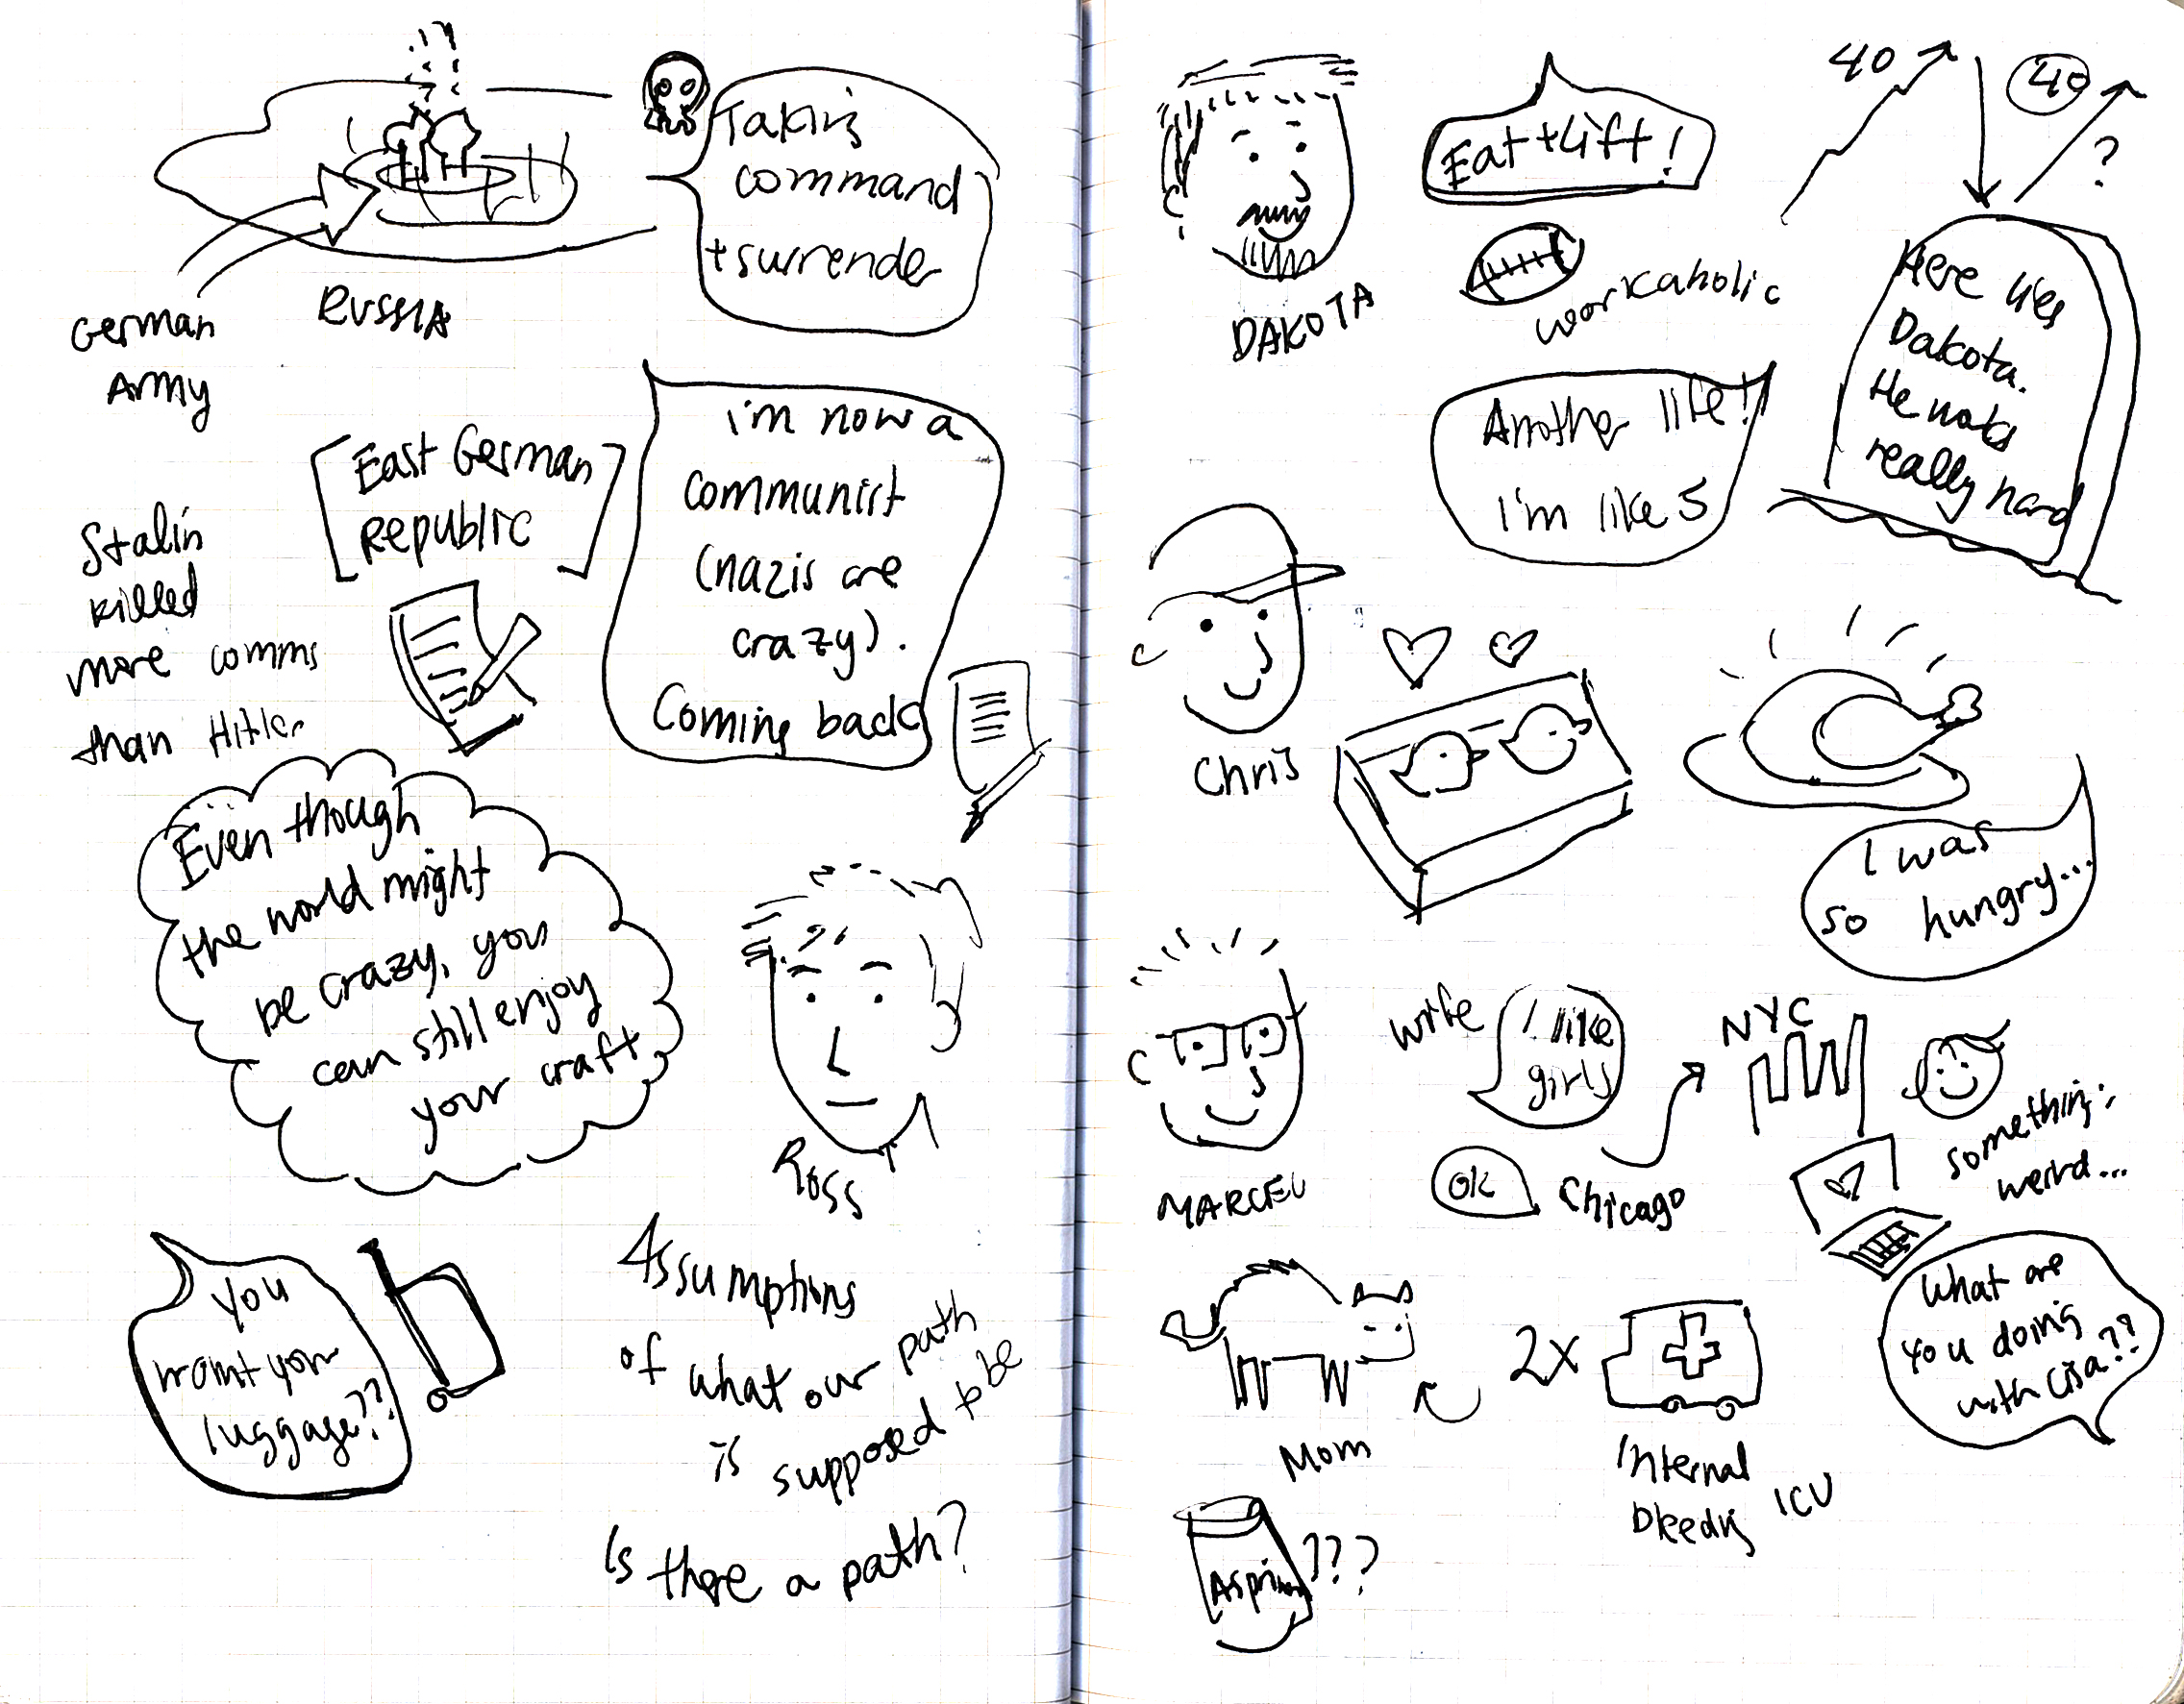 Taking
command
+ surrender
RUSSIA
German
Army
[East German
republic]
i'm now a
communist
(nazis are
crazy).
Coming back
Stalin
killed
more comms
than Hitler
Even though
the world might
be crazy, you
can still enjoy
your craft
Ross
You
want your
luggage??
Assumptions
of what our path
is supposed to be
Is there a path?
DAKOTA
Eat + Lift!
workaholic
40
40
?
Here lies
Dakota.
He works
really hard
Another life!
I'm like 5
Chris
I was
so hungry...
MARCEL
wife
I like
girls
OK
Chicago
NYC
something
weird...
What are
you doing
with Lisa??
Mom
2x
Internal
Bleeding
ICU
Aspirin
???